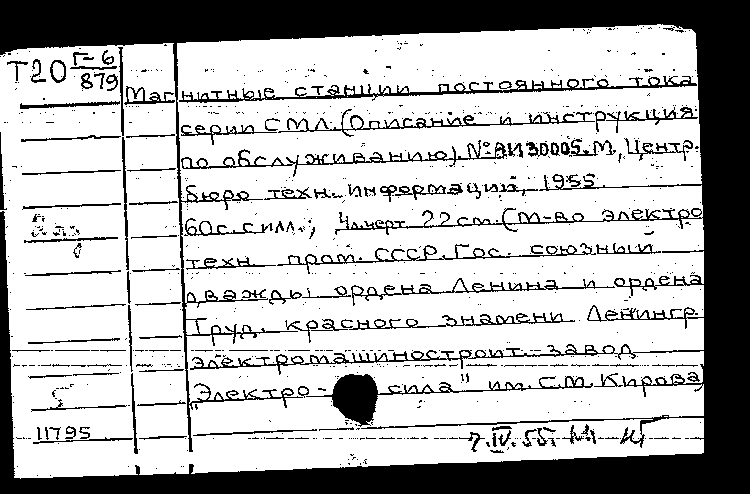 Т20 Г-6
879
Магнитные станции постоянного тока
серии СМЛ. (Описание и инструкция
по обслуживанию). № АИ30005. М., Центр.
бюро техн. информации, 1955.
60с. с илл.; 4л. черт. 22 см. (М-во электро
техн. пром. СССР. Гос. союзный
дважды ордена Ленина и ордена
Труд. красного знамени Ленингр.
электромашиностроит. завод
"Электро-сила" им. С.М. Кирова)
5
11795
7.IV.55г.